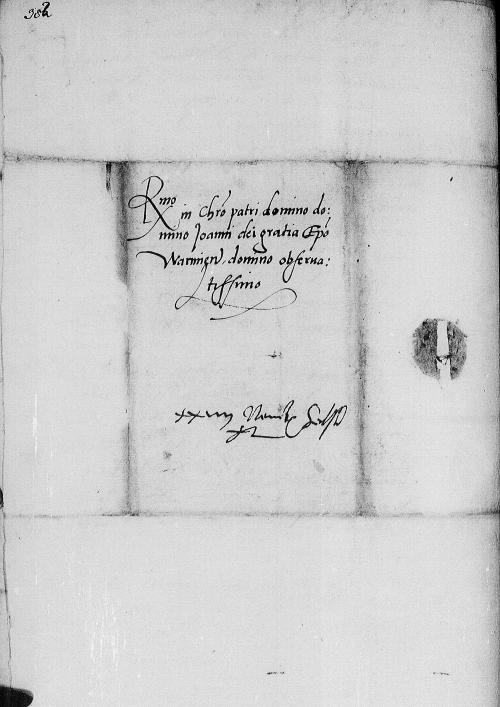 982
Rmo in Chro patri domino do:
mino Joanni dei gratia Epo
Warmien. domino observa:
tissimo